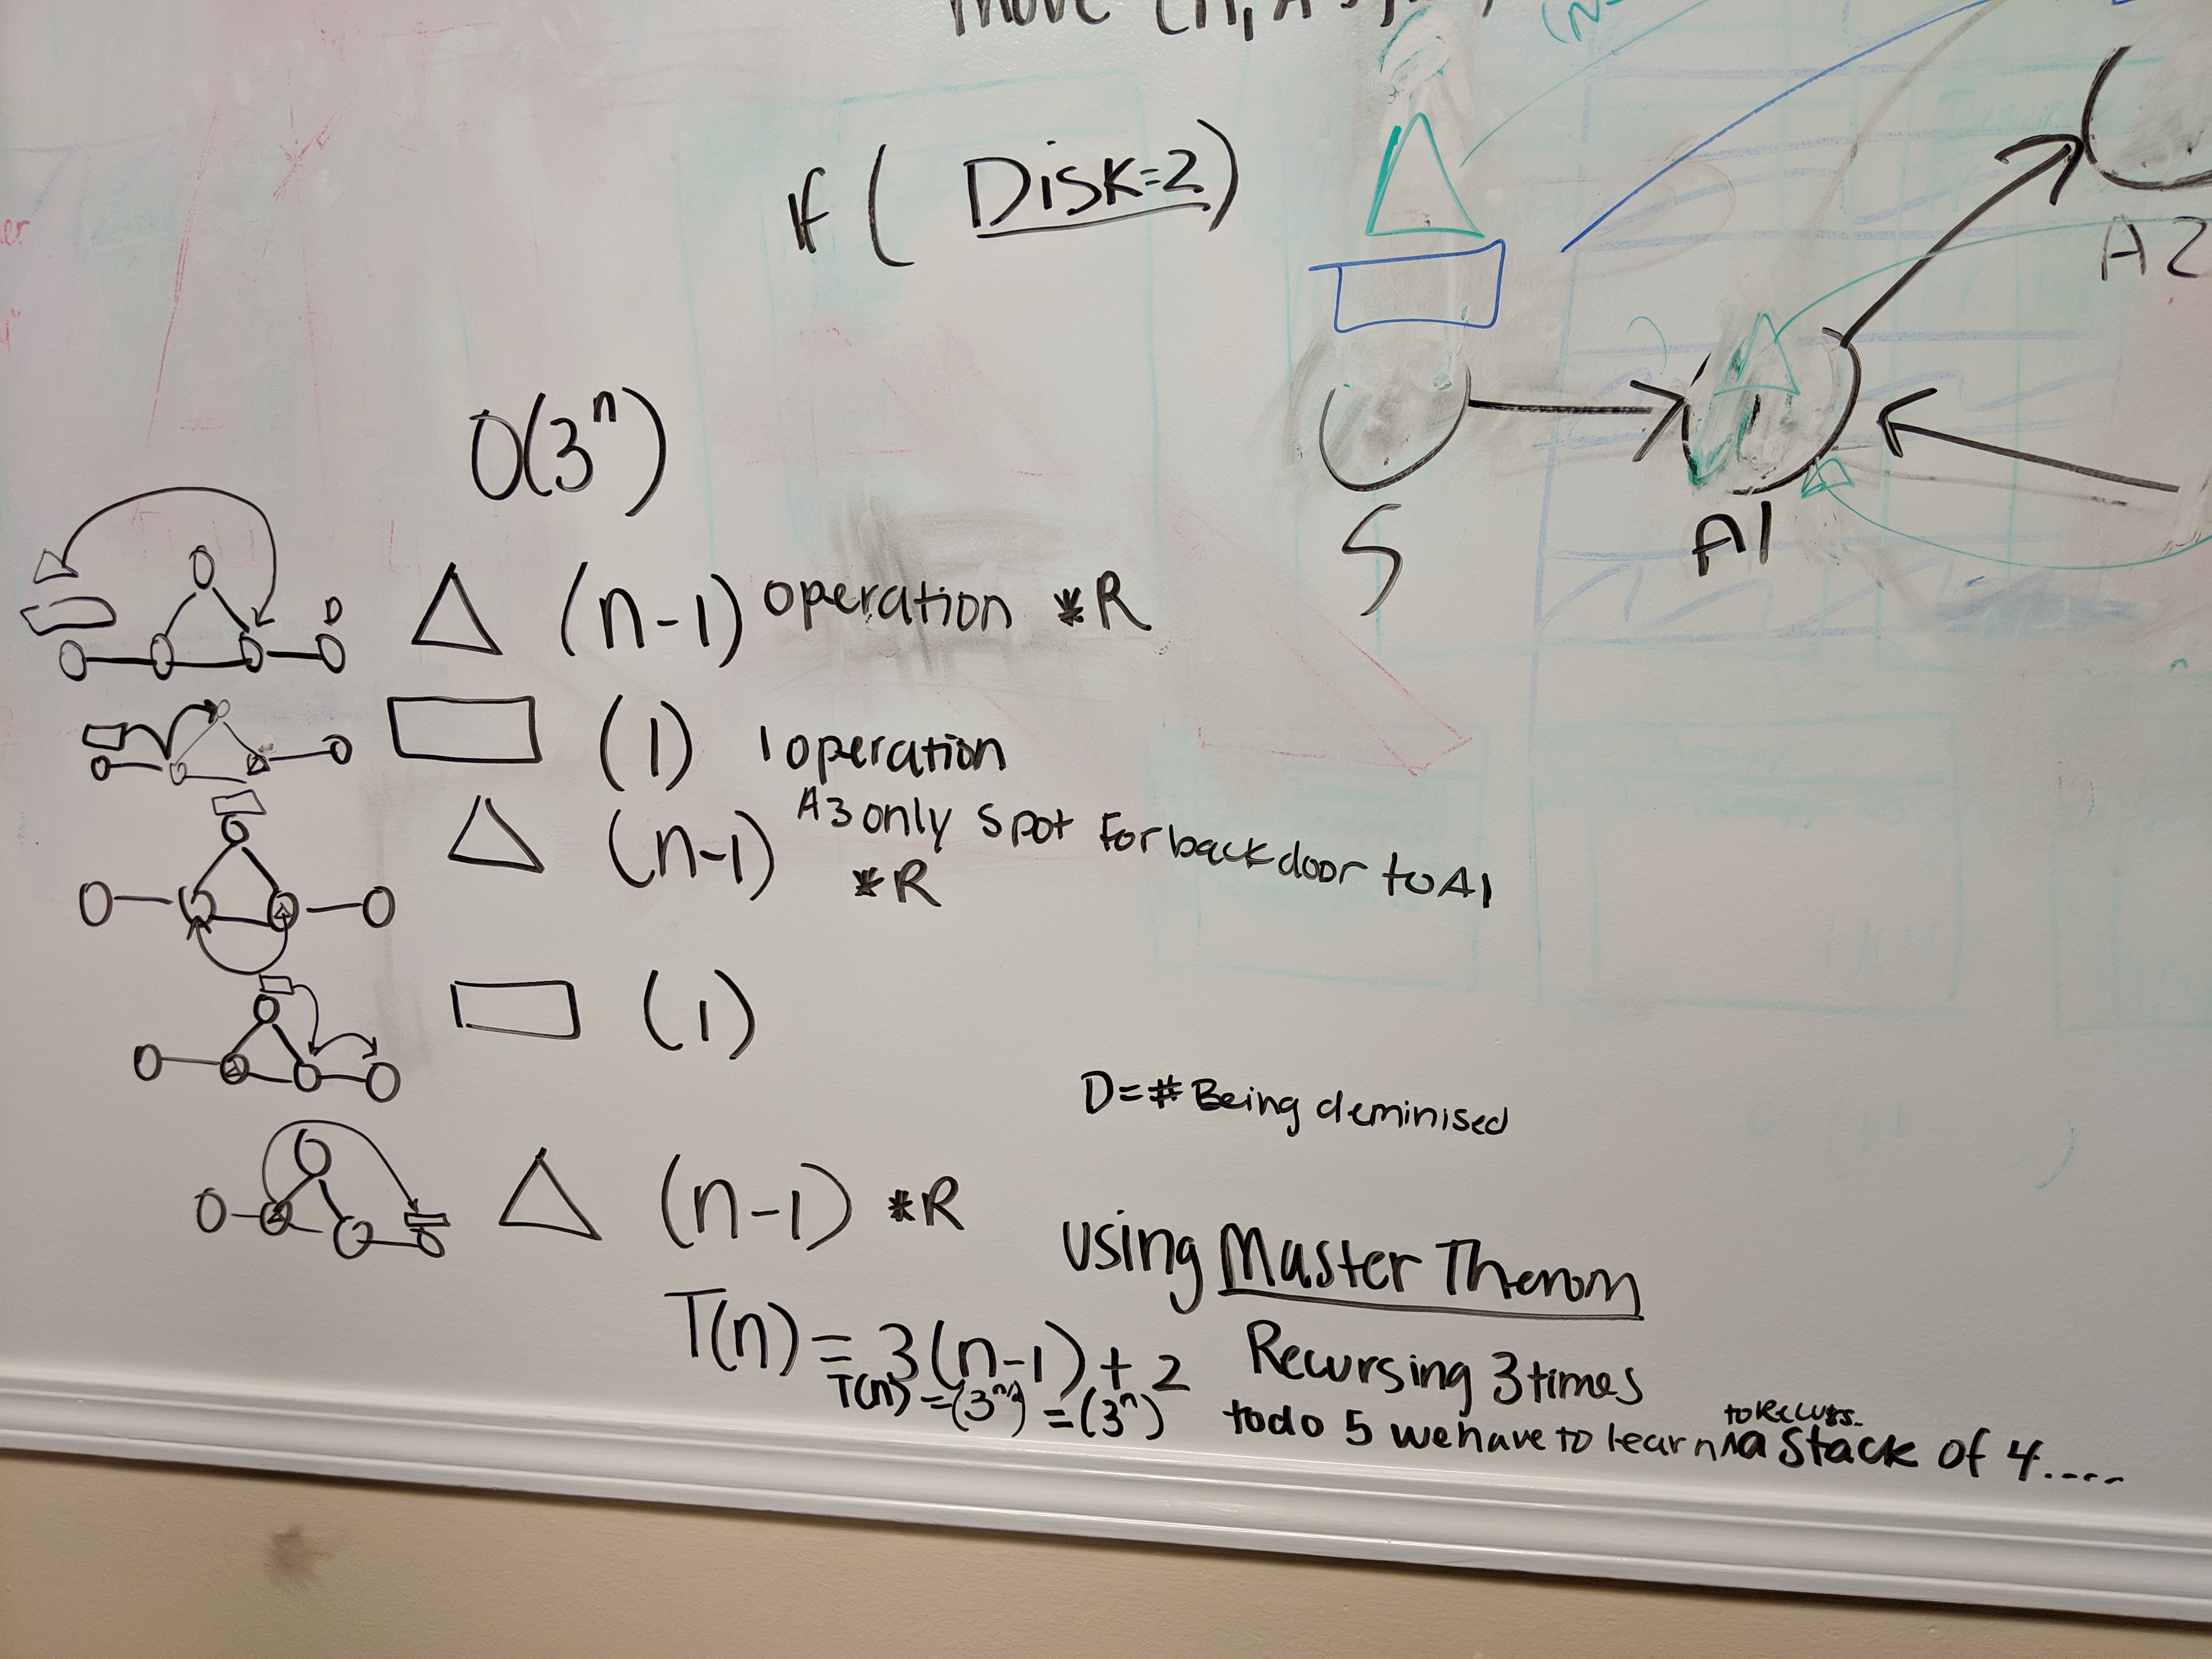 move (n, A
If ( Disk=2 )
A2
O(3ⁿ)
S
A1
D
(n-1) operation *R
(1) 1 operation
A3 only spot For backdoor to A1
(n-1) *R
(1)
D=# Being deminised
(n-1) *R
using Master Therom
T(n) = 3(n-1) + 2 Recursing 3 times
= (3ⁿ)
todo 5 we have to learn to Recurs. a stack of 4.....